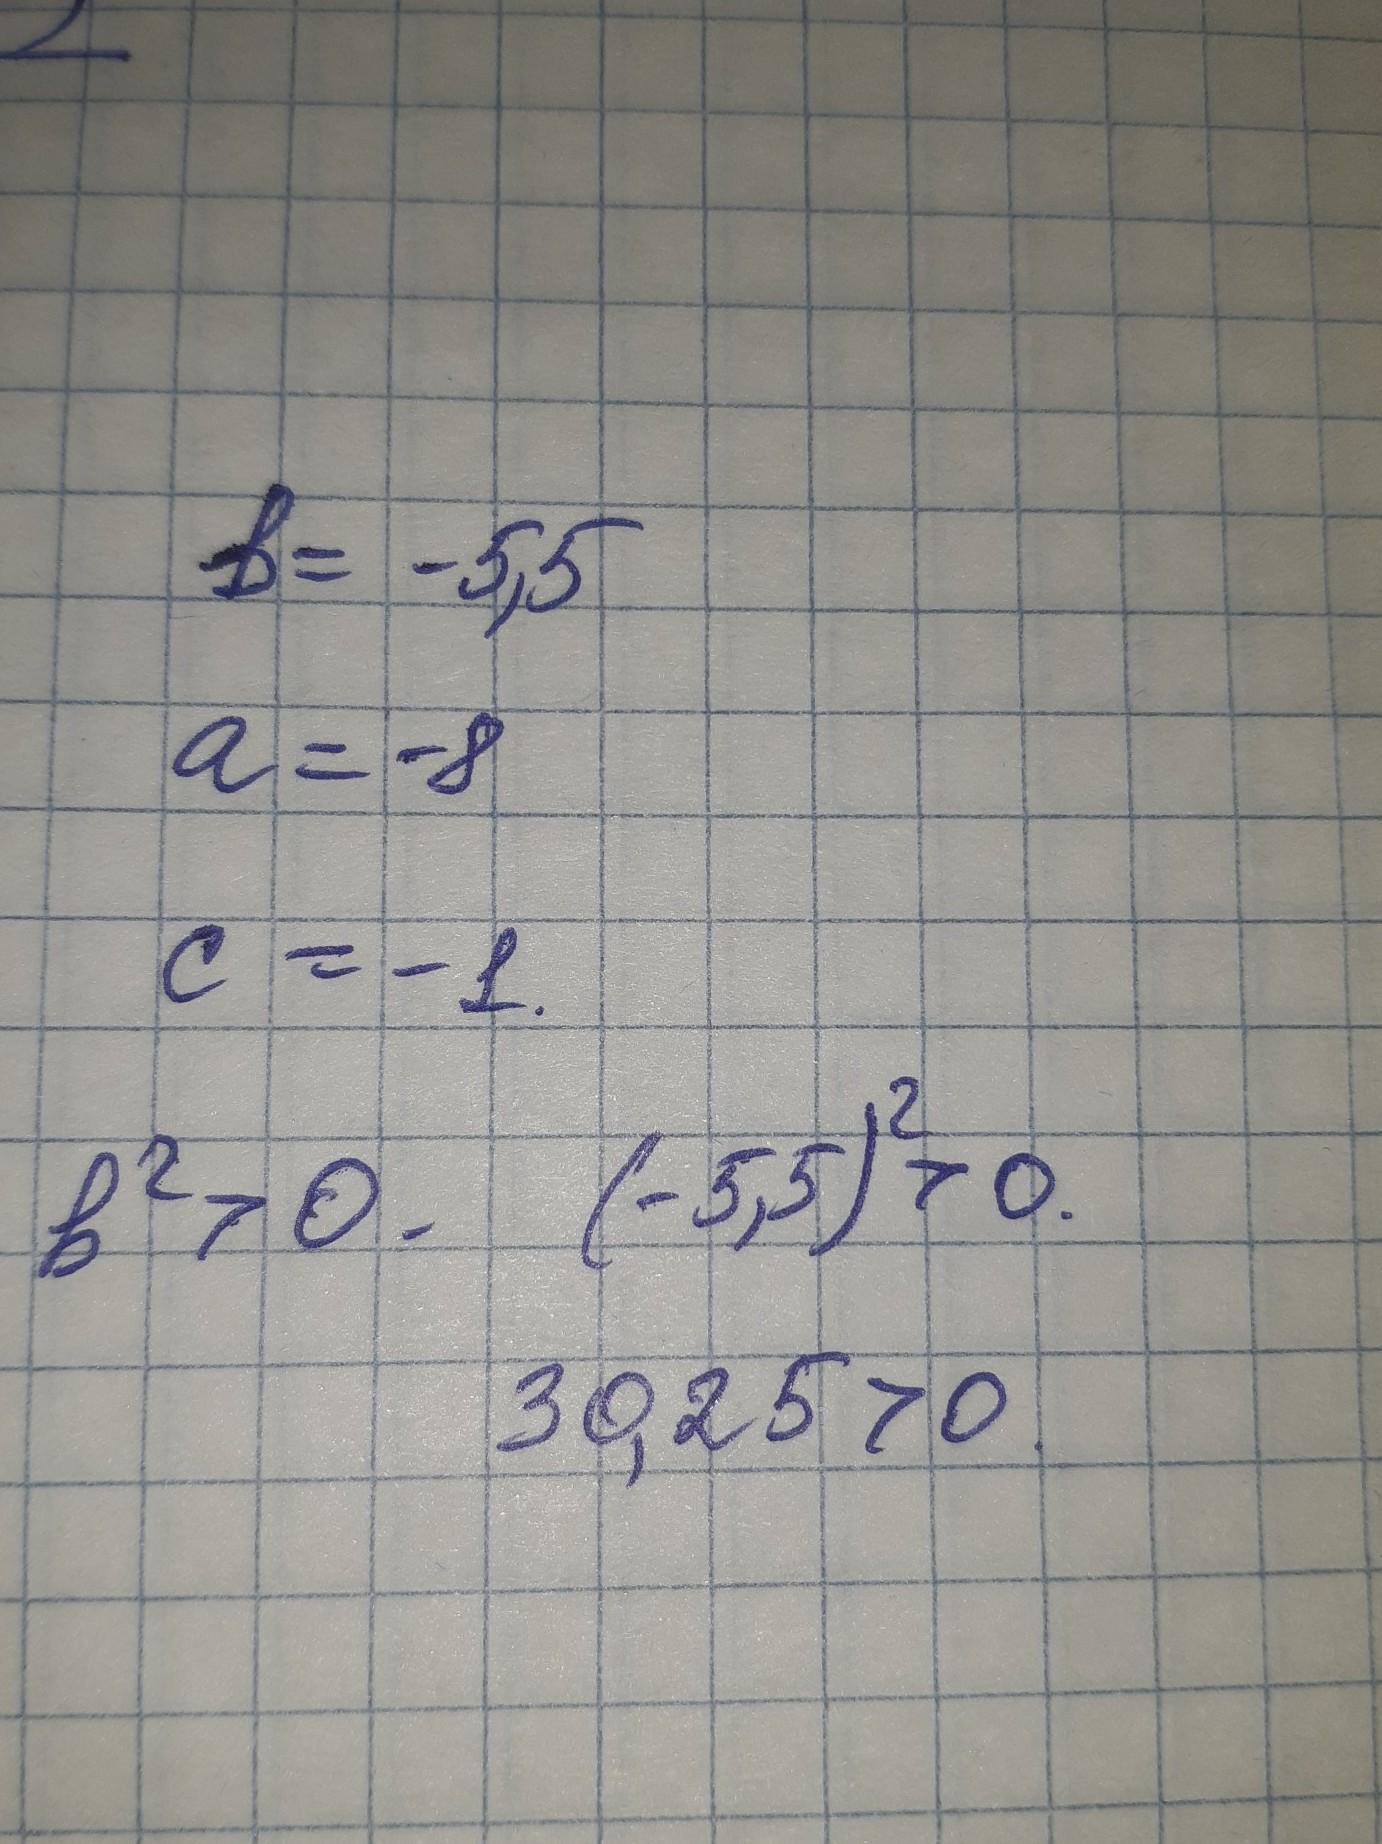 2
b = -5,5
a = -8
c = -1.
b² > 0. (-5,5)² > 0.
30,25 > 0.